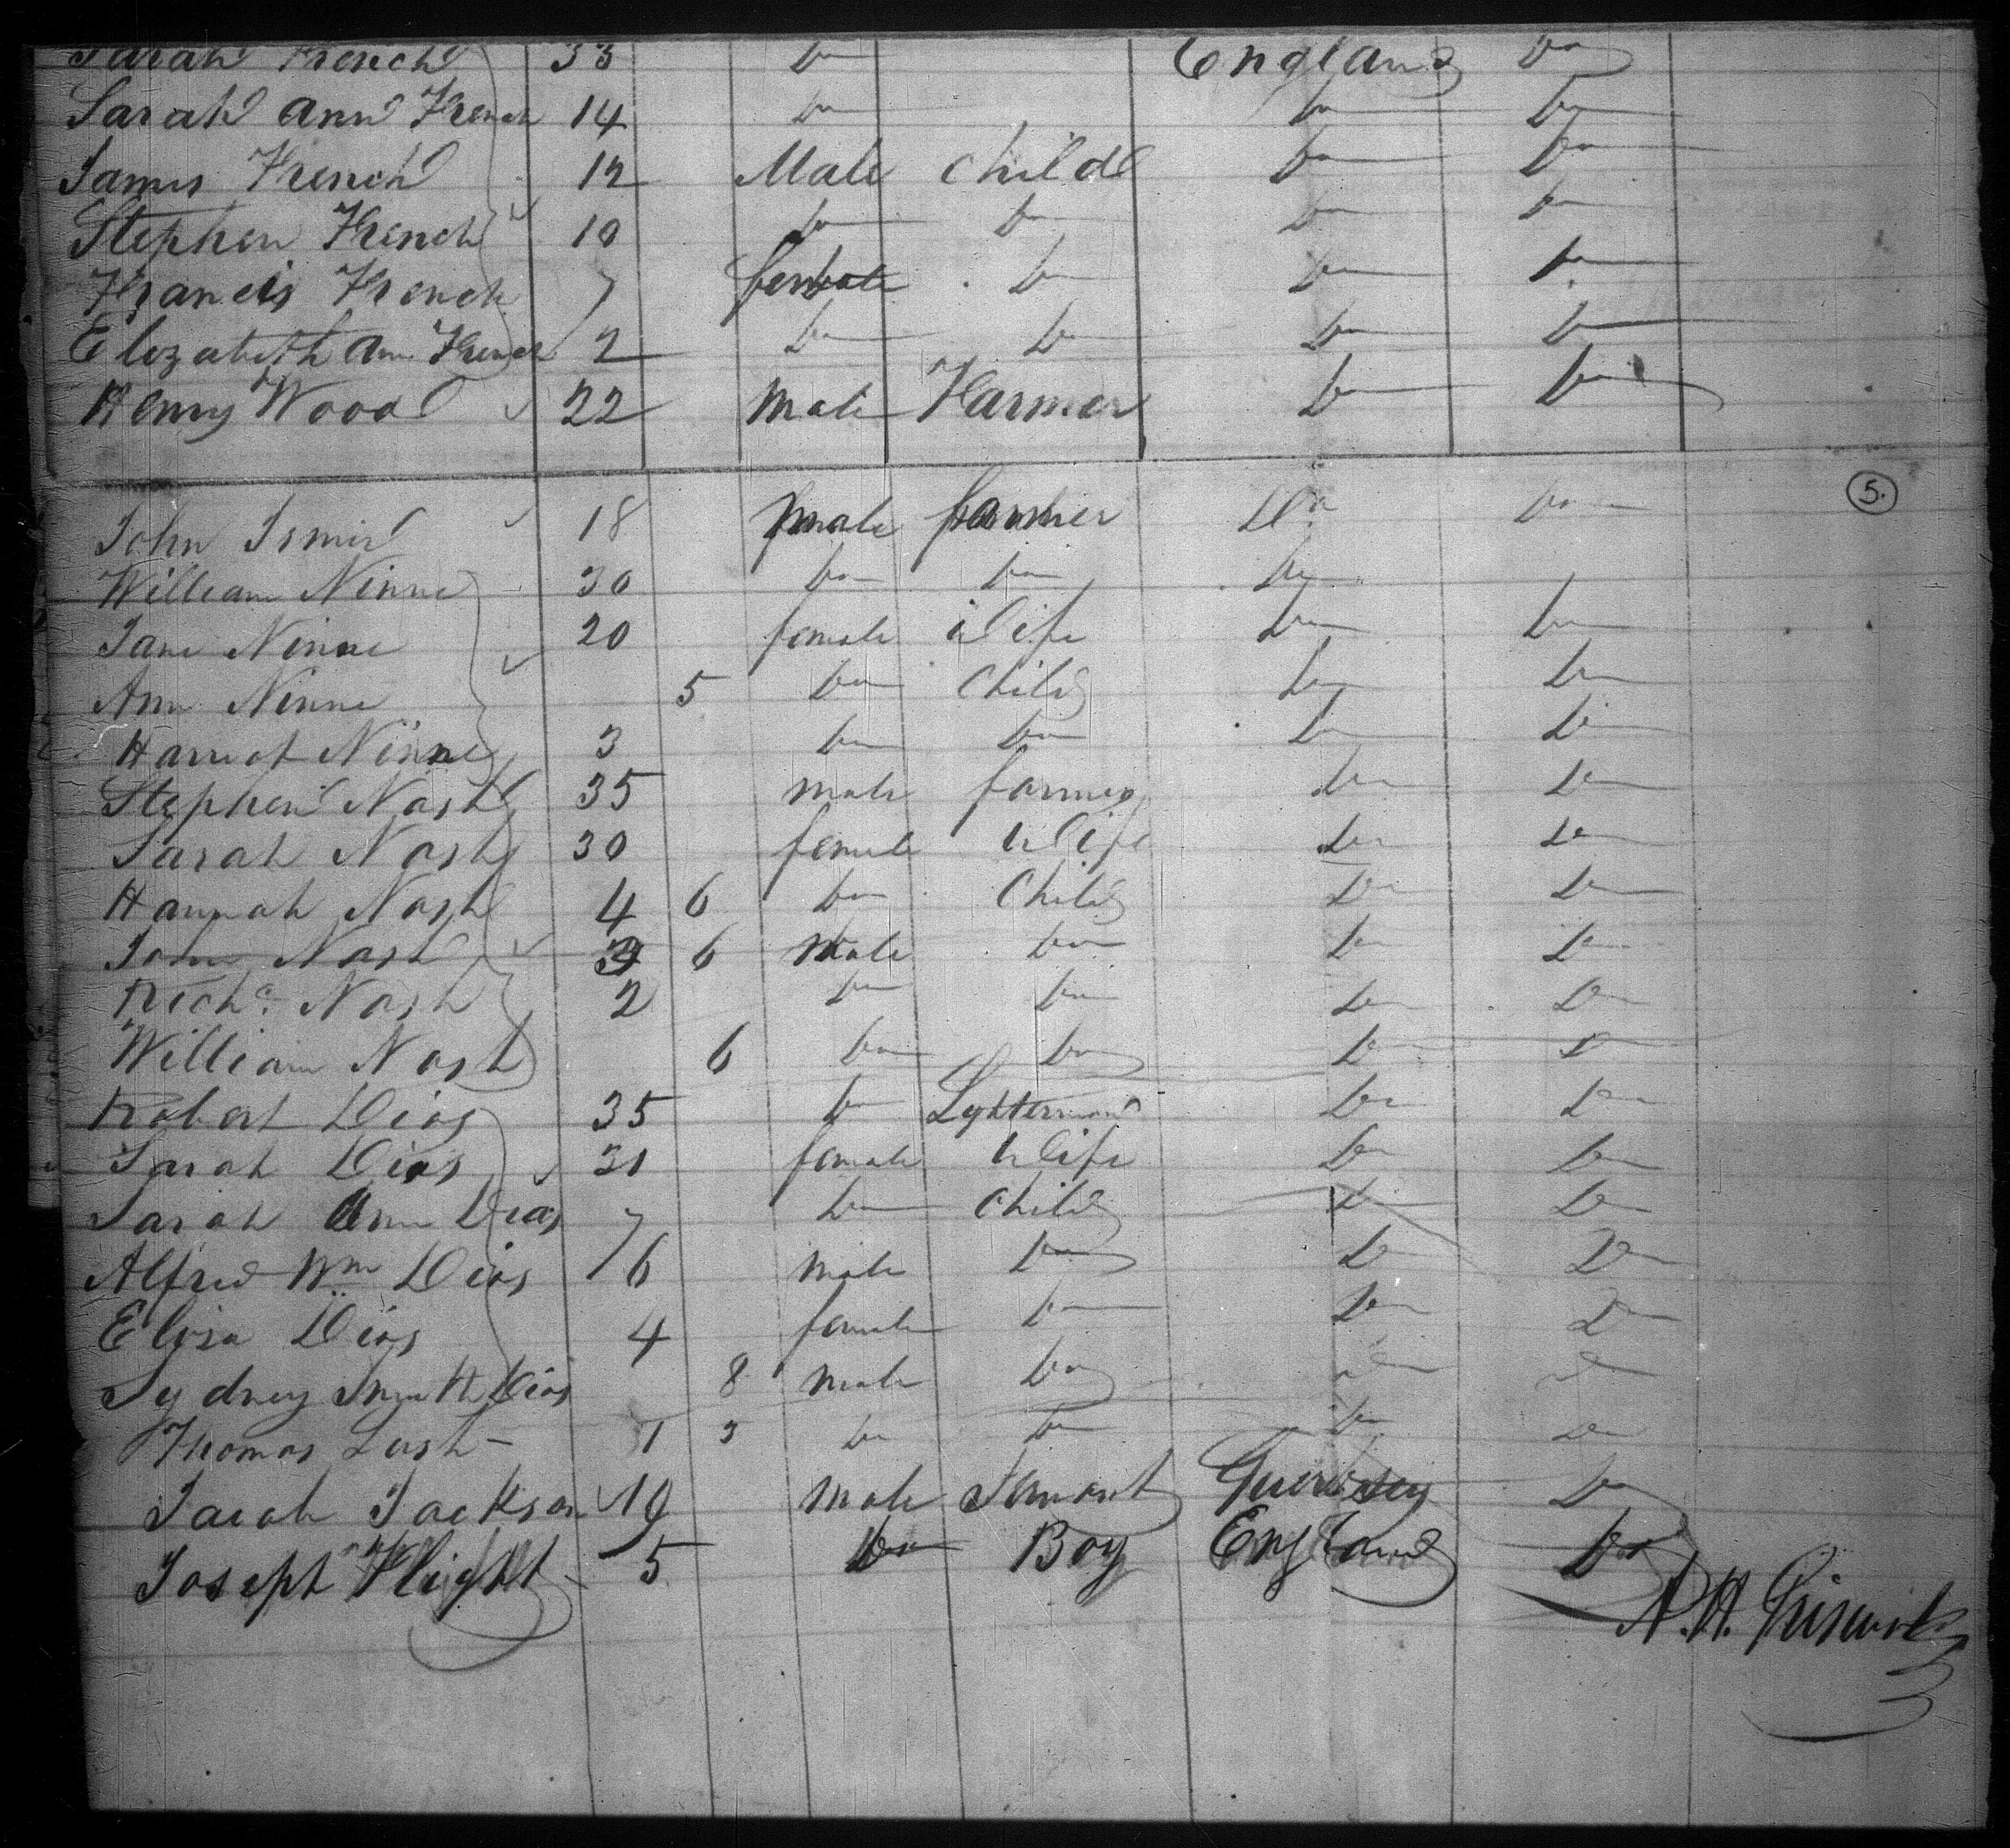 Sarah French 33 Do England Do
Sarah Ann French 14 Do Do Do
James French 12 Male Child Do Do
Stephen French 10 Do Do Do Do
Francis French 7 female Do Do Do
Elizabeth Ann French 2 Do Do Do Do
Henry Wood 22 Male Farmer Do Do
5.
John 18 male farmer Do Do
William Ninne 30 Do Do Do
Jane Ninne 20 female Wife Do Do
Ann Ninne 5 Do Child Do Do
Harriot Ninne 3 Do Do Do Do
Stephen Nash 35 male farmer Do Do
Sarah Nash 30 female Wife Do Do
Hannah Nash 4 6 Do Child Do Do
John Nash 3 6 Male Do Do Do
Richd. Nash 2 Do Do Do Do
William Nash 6 Do Do Do Do
Robert Dias 35 Do Lyhterman Do Do
Sarah Dias 31 female Wife Do Do
Sarah Ann Dias 7 Do Child Do Do
Alfred Wm Dias 6 male Do Do Do
Elisa Dias 4 female Do Do Do
Sydney Smith Dias 8 male Do Do Do
Thomas Lush 1 3 Do Do Do Do
Sarah Jackson 19 male Servant Guernsey Do
Joseph Flight 5 Do Boy England Do
A. H.